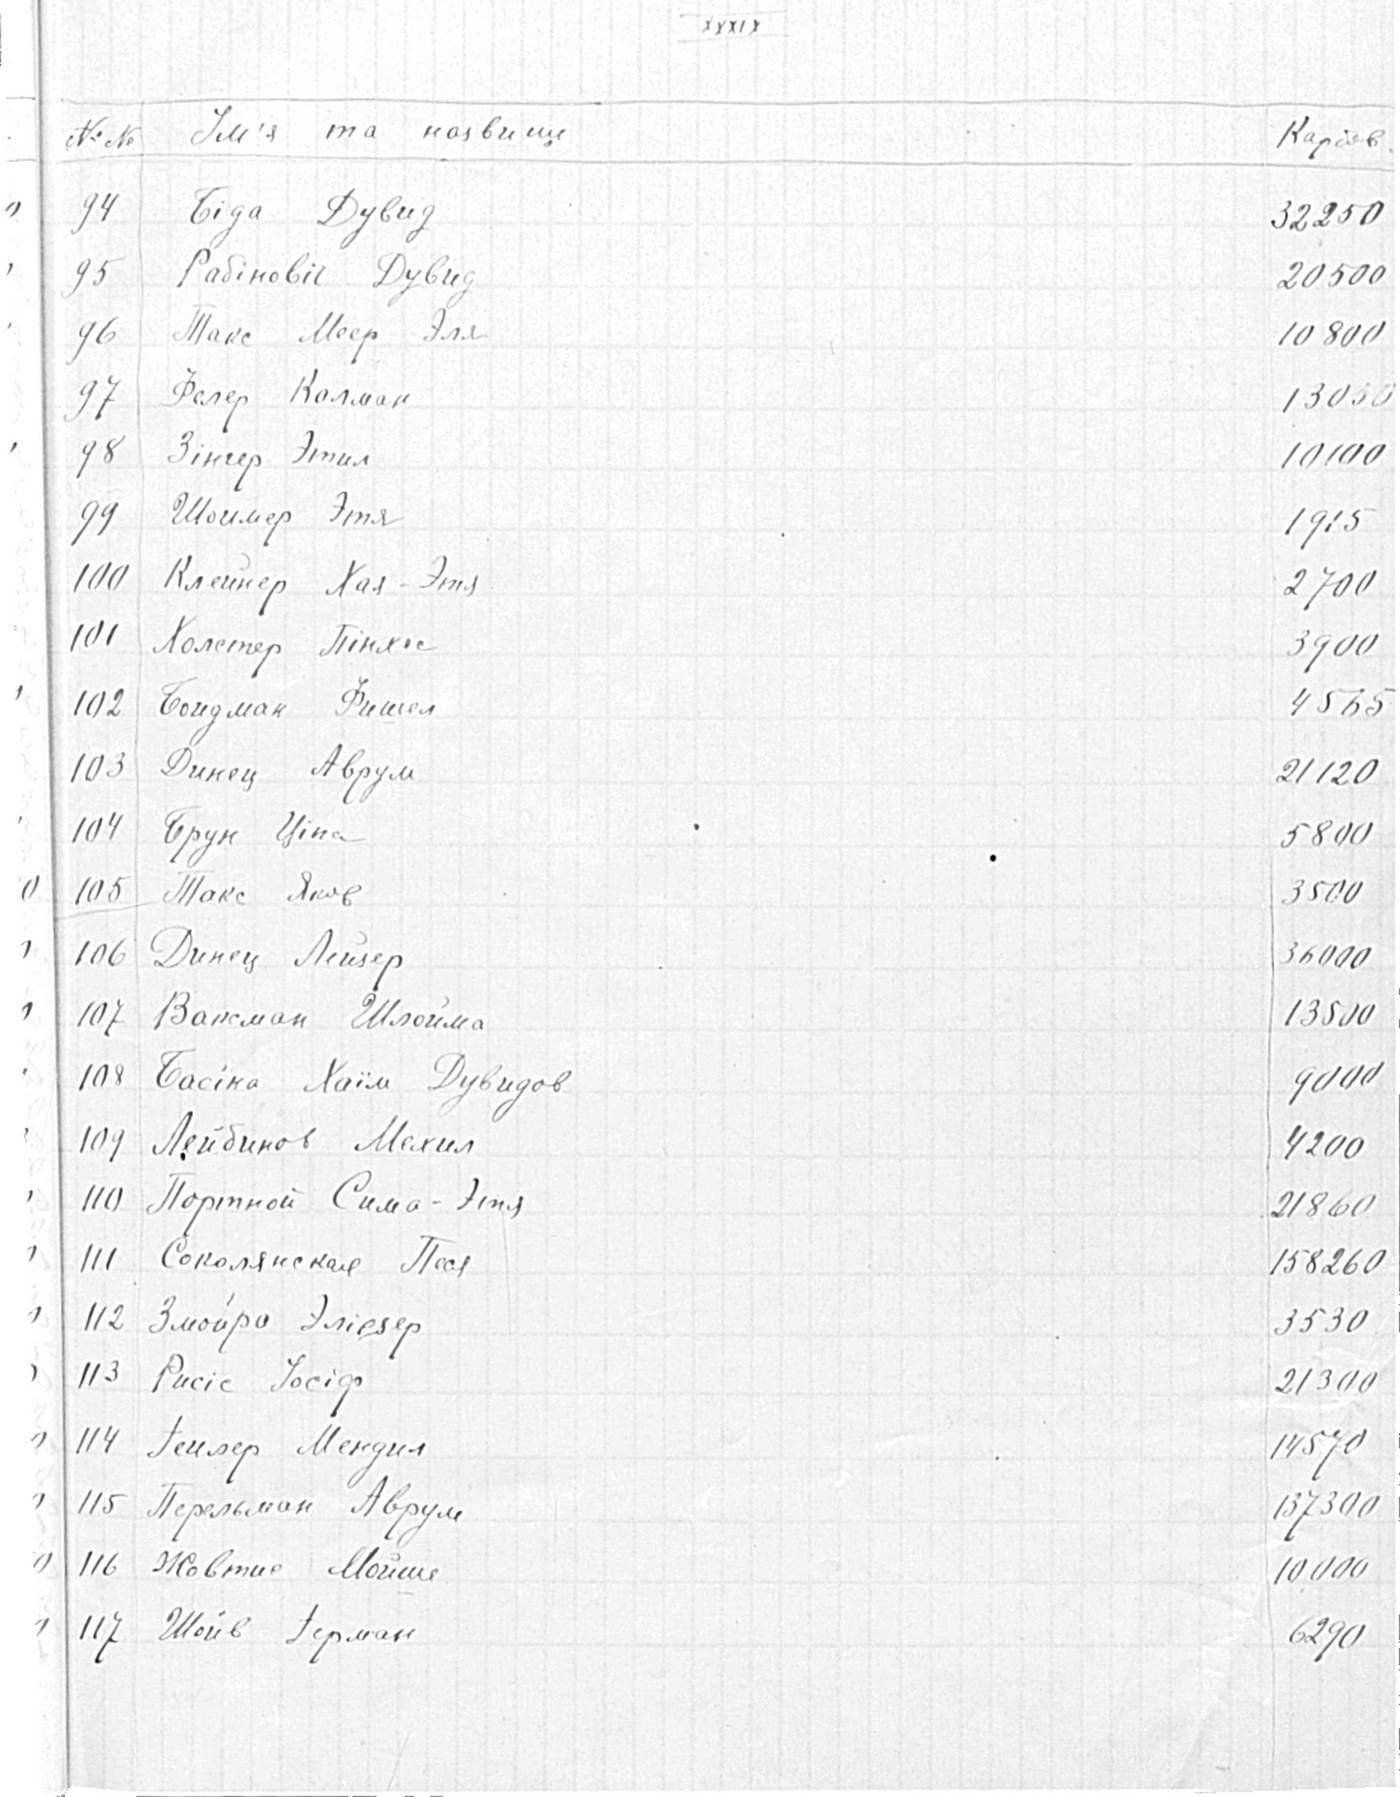 XXXIX
№№ Ім'я та назвище Карбов.
94 Біда Дувид 32250
95 Рабіновіч Дувид 20500
96 Такс Меер Эля 10800
97 Фелер Калман 13050
98 Зінгер Этил 10100
99 Шоимер Этя 1915
100 Клейнер Хая-Этя 2700
101 Холстер Пінхос 3900
102 Боидман Фишел 4565
103 Динец Аврум 21120
104 Брун Ціпа 5800
105 Такс Яков 3500
106 Динец Лейзер 36000
107 Ваксман Шлойма 13500
108 Басіна Хаїм Дувидов 9000
109 Лейбинов Мехил 4200
110 Портной Сима-Этя 21860
111 Соколянская Песя 158260
112 Змойро Эліезер 3530
113 Рисіс Іосіф 21300
114 Геилер Мендил 14570
115 Перельман Аврум 137300
116 Жовтис Мойше 10000
117 Шойв Герман 6290